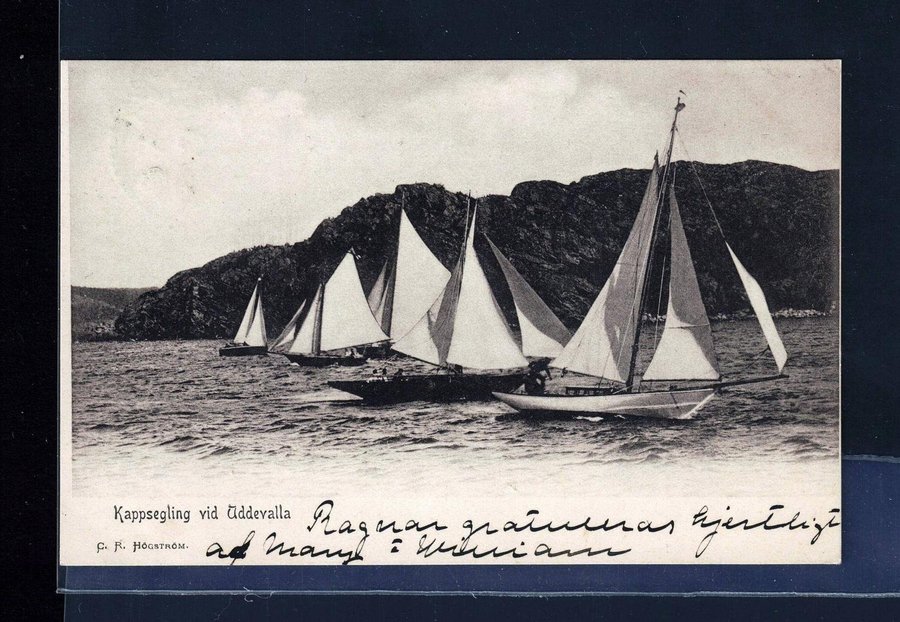 Kappsegling vid Uddevalla
Ragnar gratuleras hjertligt
C. R. HÖGSTRÖM.
af Mary = William